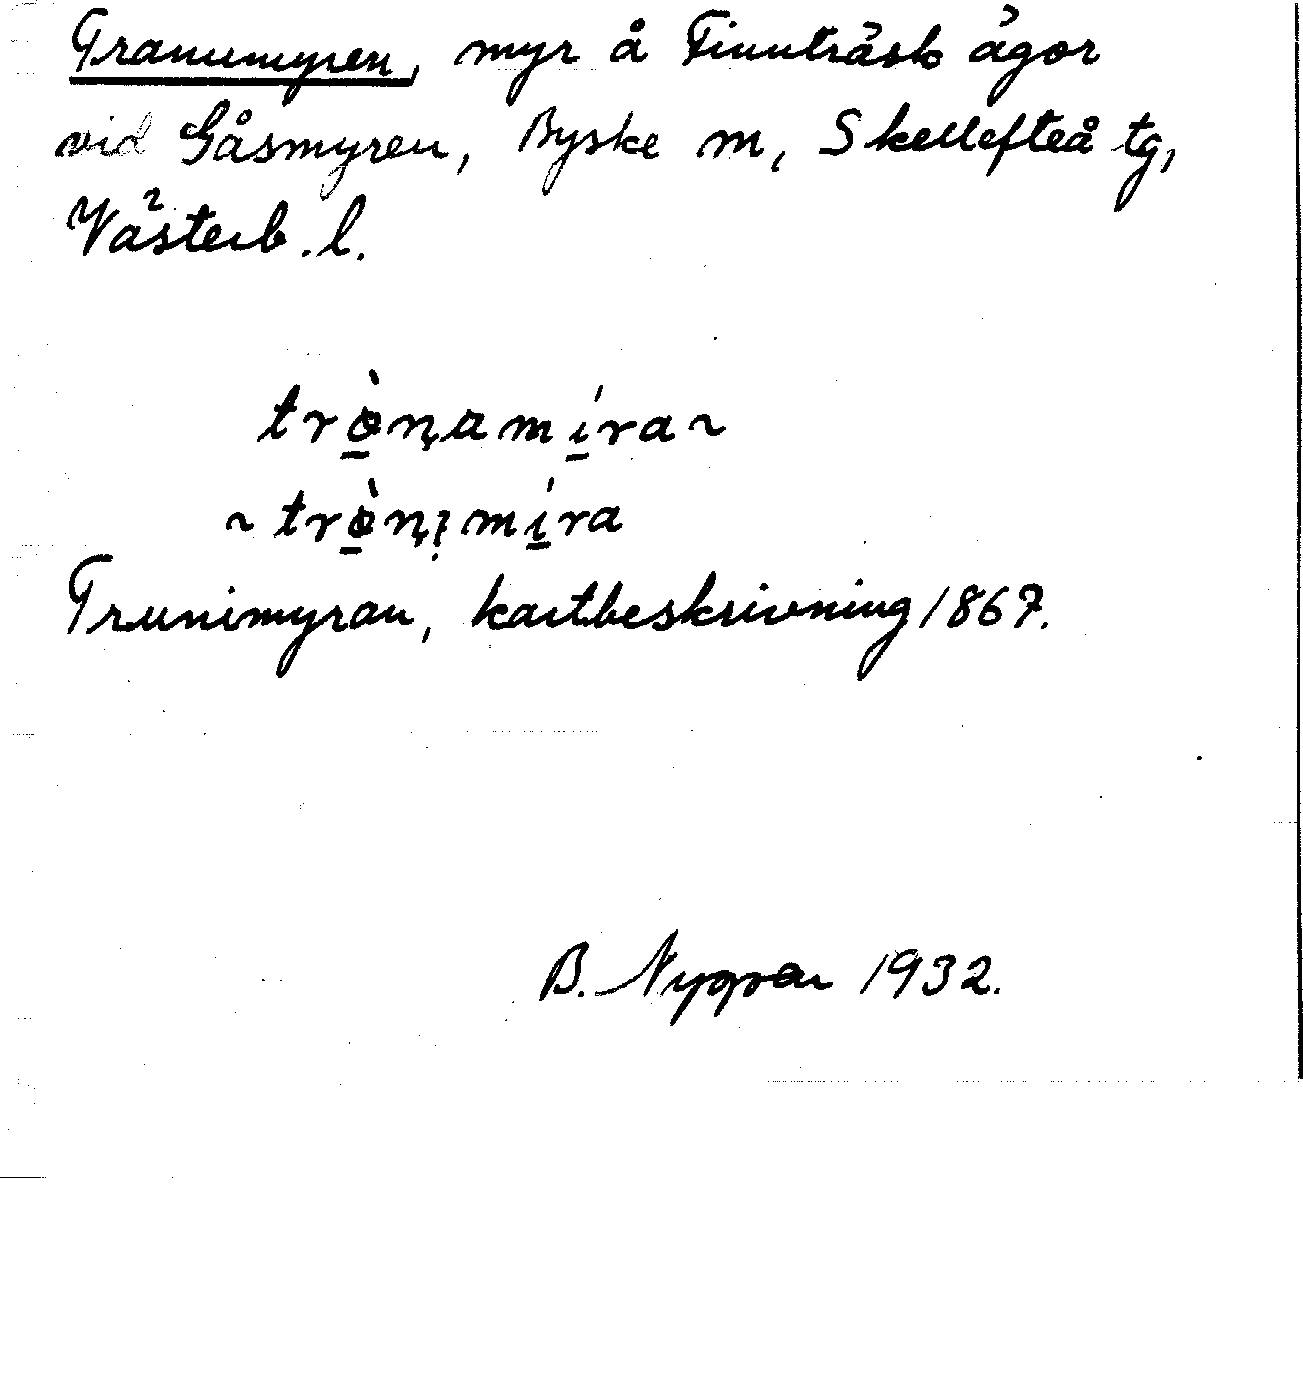 Tranumyren, myr å Finnträsk ägor
vid Gåsmyren, Byske m, Skellefteå tg,
Västerb. l.
trò̱ṇamí̱ra ~
~ trò̱ṇı̣mí̱ra
Trunimyran, kartbeskrivning 1867.
B. Nygren 1932.